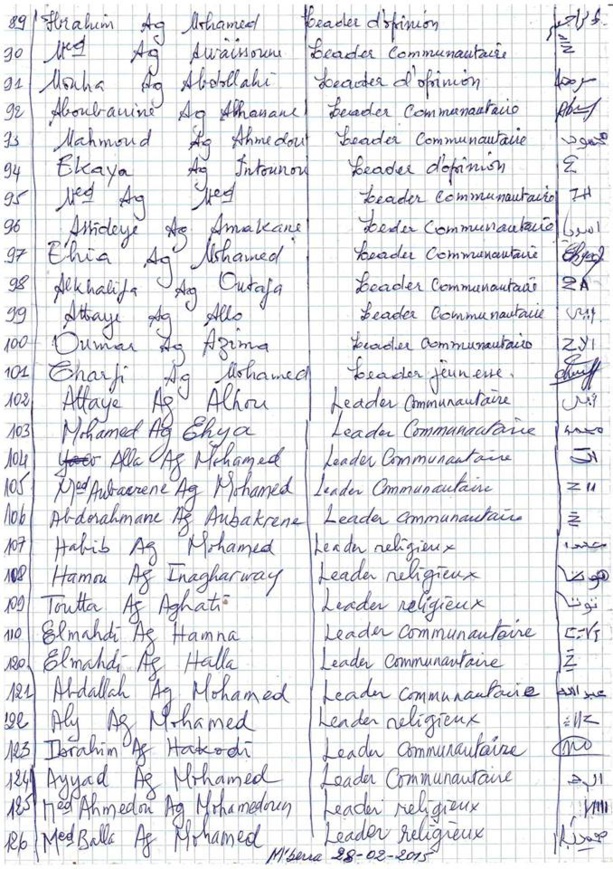 89 Ibrahim Ag Mohamed Leader d'opinion
90 Med Ag Awaïssoune Leader Communautaire
91 Mouha Ag Abdollahi Leader d'opinion
92 Aboubacrine Ag Alhanane Leader Communautaire
93 Mahmoud Ag Ahmedou Leader Communautaire
94 Ekaya Ag Intounou Leader d'opinion
95 Med Ag Med Leader Communautaire
96 Attideye Ag Amakane Leader Communautaire
97 Ehia Ag Mohamed Leader Communautaire
98 Alkhalifa Ag Outafa Leader Communautaire ZA
99 Attaye Ag Allo Leader Communautaire
100 Oumar Ag Azima Leader Communautaire
101 Eharji Ag Mohamed Leader jeunesse.
102 Attaye Ag Alhou Leader Communautaire
103 Mohamed Ag Ehya Leader Communautaire
104 Alla Ag Mohamed Leader Communautaire
105 Med Aubacrene Ag Mohamed Leader Communautaire
106 Abdorahmane Ag Aubakrene Leader Communautaire
107 Habib Ag Mohamed Leader religieux
108 Hamou Ag Inagharway Leader religieux
109 Toutta Ag Aghati Leader religieux توتا
110 Elmahdi Ag Hamna Leader Communautaire
120 Elmahdi Ag Halla Leader Communautaire
121 Abdallah Ag Mohamed Leader Communautaire عبد الله
122 Aly Ag Mohamed Leader religieux
123 Ibrahim Ag Hakodi Leader Communautaire
124 Ayyad Ag Mohamed Leader Communautaire
125 Med Ahmedou Ag Mohamedoun Leader religieux
126 Med Balla Ag Mohamed Leader religieux
M'bera 28-02-2015